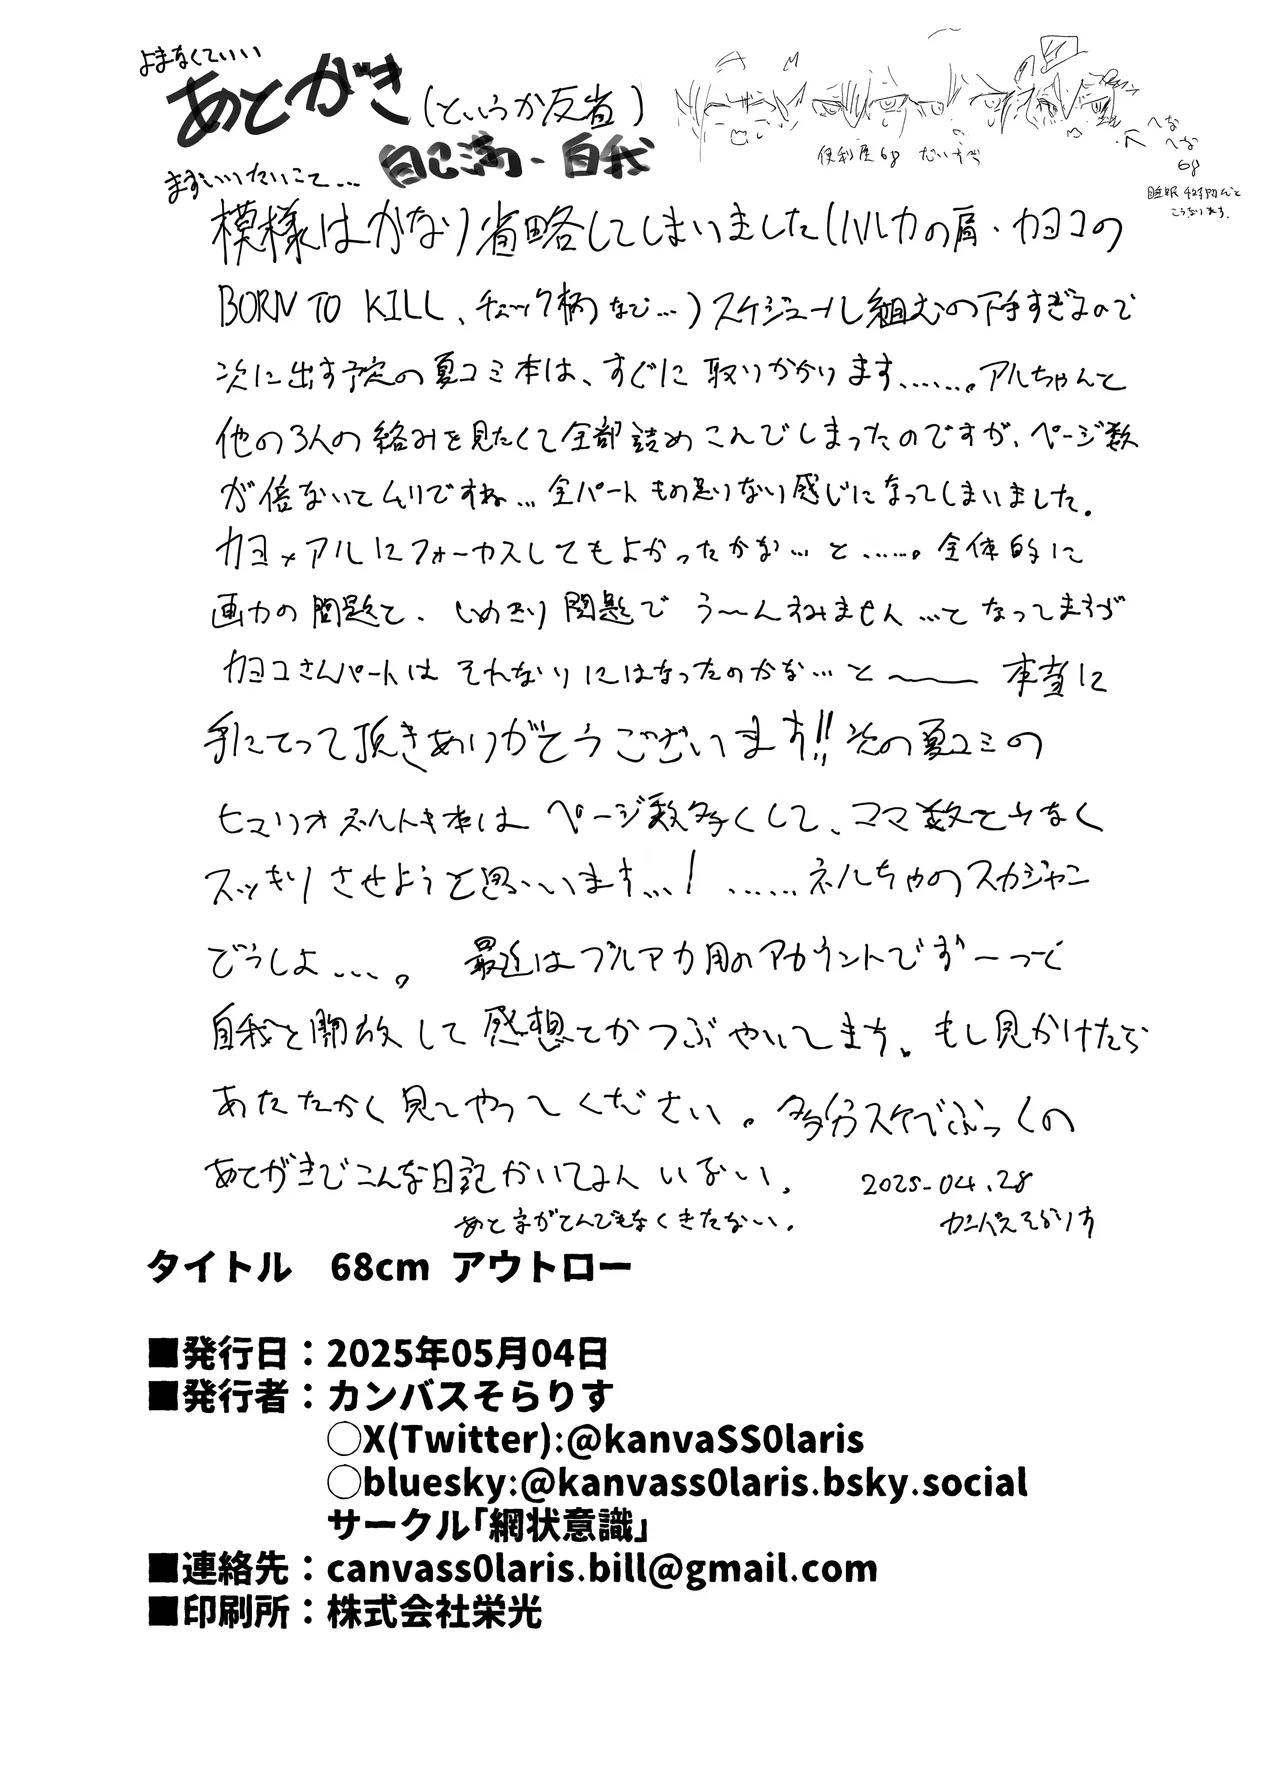 よまなくていい
あとがき(というか反省)
自己満・自我
便利屋68 だいすき
へな
へな
68
睡眠4時間だと
こうなります。
まずいいたいこと...
模様はかなり省略してしまいました(ハルカの肩・カヨコの
BORN TO KILL、チェック柄など...)スケジュール組むの下手すぎるので
次に出す予定の夏コミ本は、すぐに取りかかります......。アルちゃんと
他の3人の絡みを見たくて全部詰めこんでしまったのですが、ページ数
が倍ないとムリですね...全パートもの足りない感じになってしまいました。
カヨ×アルにフォーカスしてもよかったかな...と......。全体的に
画力の問題と、しめきり問題でう〜んすみません...となってますが
カヨコさんパートはそれなりにはなったのかな...と〜 本当に
手にとって頂きありがとうございます!!次の夏コミの
ヒマリオネルトキ本はページ数多くして、コマ数を少なく
スッキリさせようと思います...! ......ネルちゃのスカジャン
どうしよ...。 最近はブルアカ用のアカウントでずーっと
自我を開放して感想とかつぶやいてます。もし見かけたら
あたたかく見てやってください。多分スケでぶっくの
あとがきでこんな日記かいてる人いない。 2025.04.28
あと字がとんでもなくきたない。 カンバスそらりす
タイトル 68cm アウトロー
■発行日：2025年05月04日
■発行者：カンバスそらりす
○X(Twitter):@kanvaSS0laris
○bluesky:@kanvass0laris.bsky.social
サークル「網状意識」
■連絡先：canvass0laris.bill@gmail.com
■印刷所：株式会社栄光